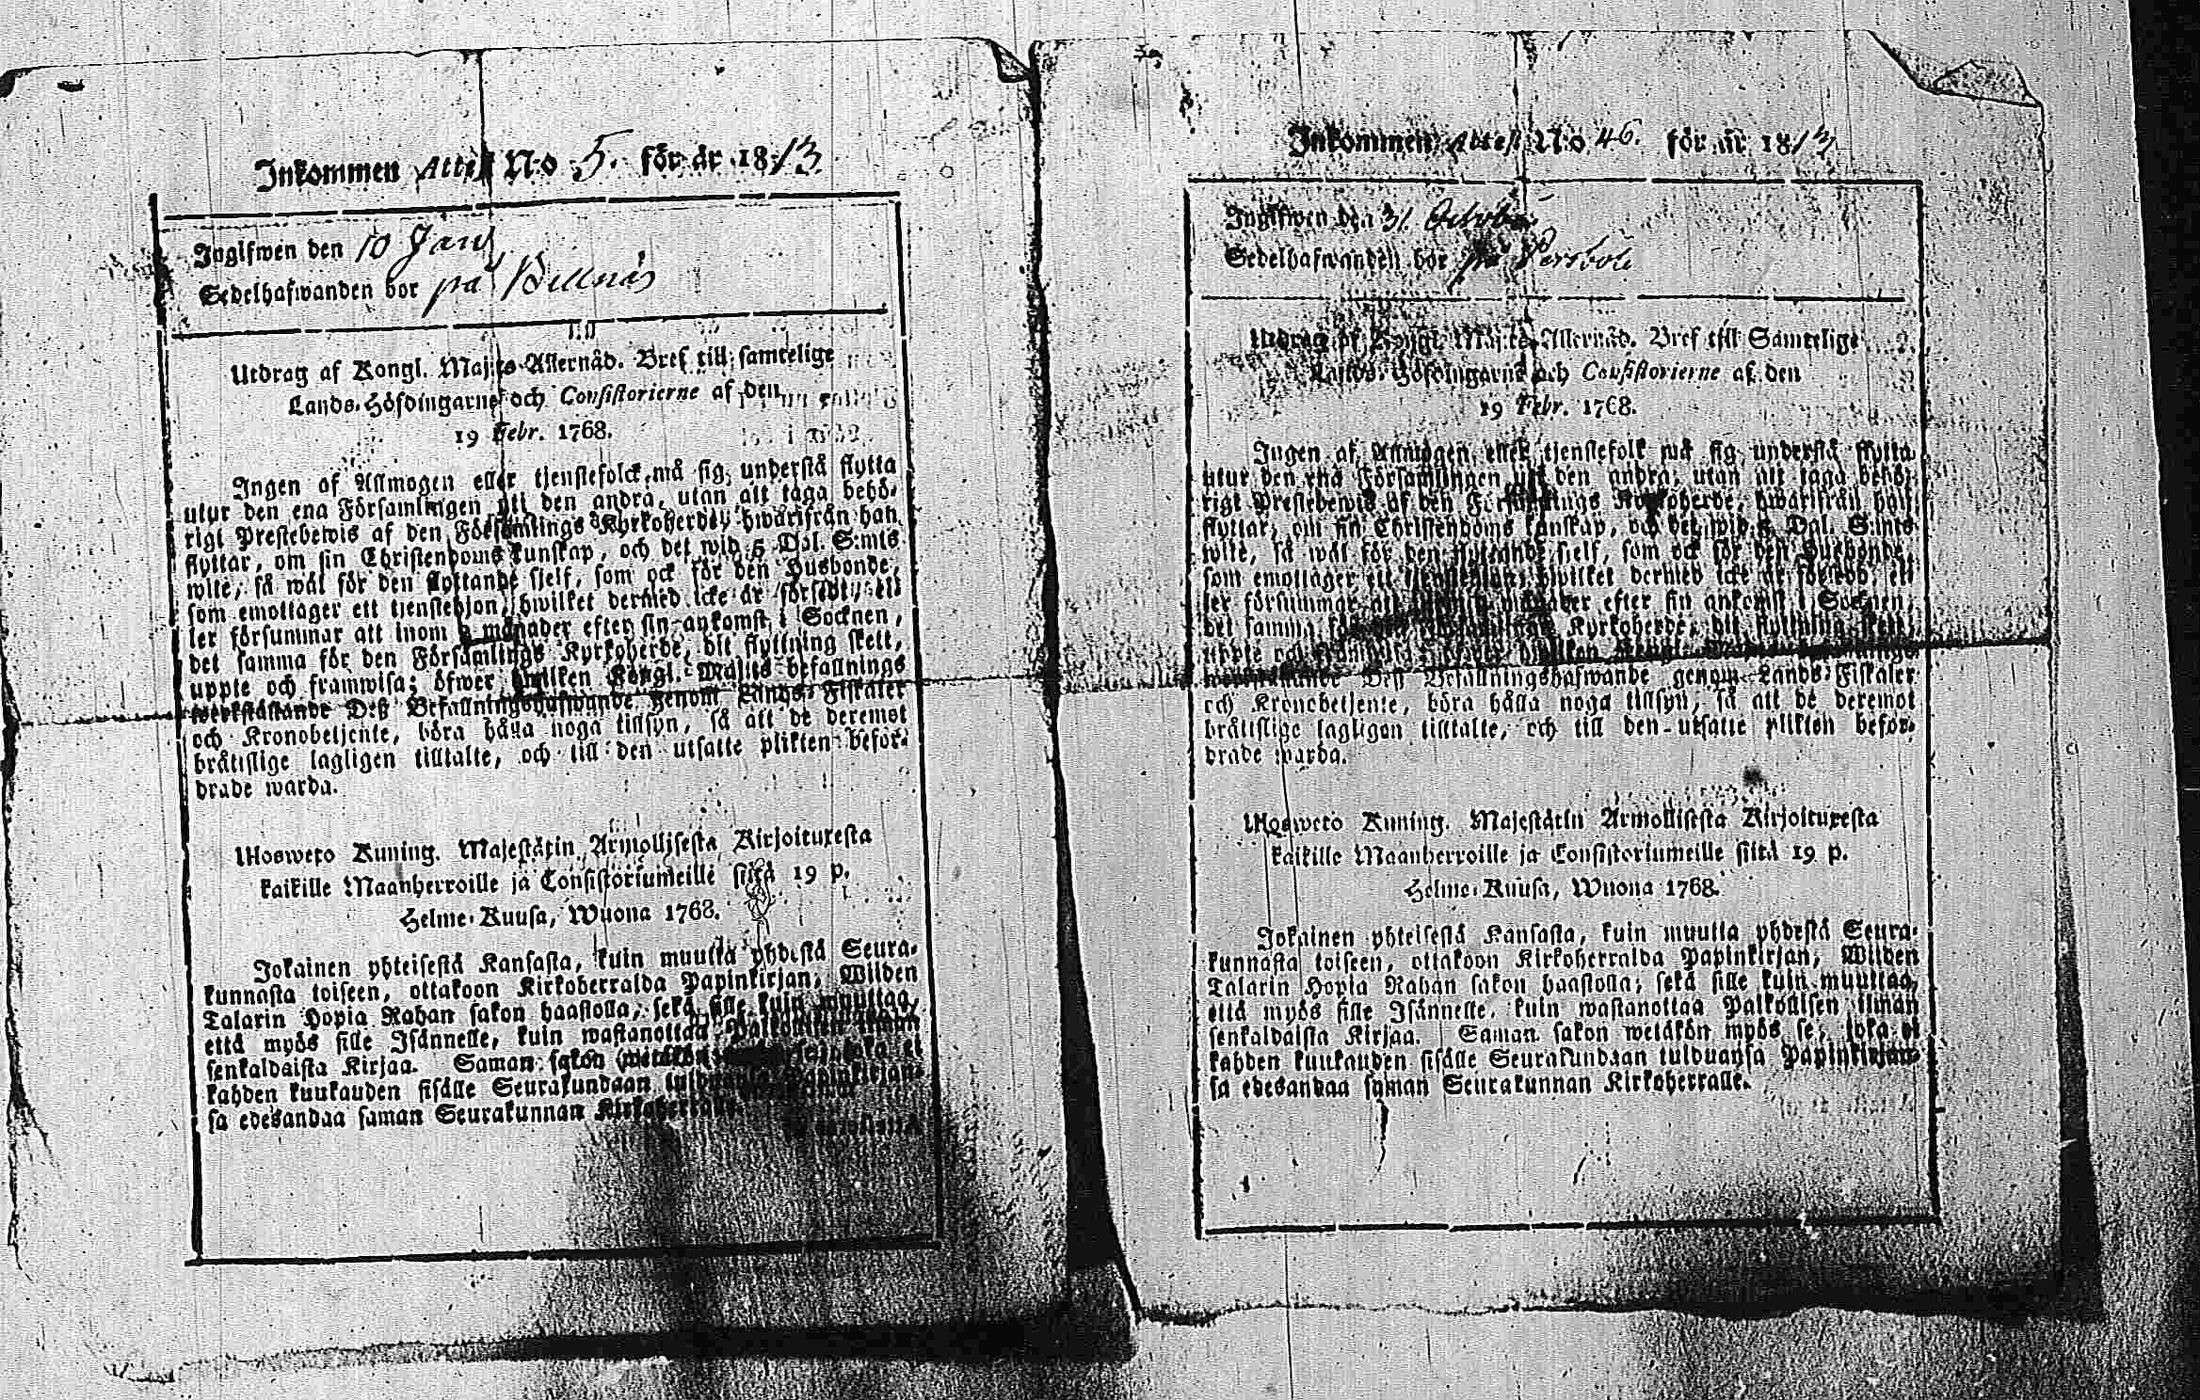 Inkommen Attest N:o 5. för år 1813.
Ingifwen den 10 Janu
Sedelhafwanden bor på Billnäs
Utdrag af Kongl. Maj:ts Allernåd. Bref till samtelige
Lands-Höfdingarne och Consistorierne af den
19 Febr. 1768.
Ingen af Allmogen eller tjenstefolck må sig understå flytta
utur den ena Församlingen uti den andra, utan att taga behö-
rigt Prestebewis af den Församlings Kyrkoherde, hwarifrån han
flyttar, om sin Christendoms kunskap, och det wid 5 Dal. S:mts
wite, så wäl för den flyttande sielf, som ock för den Husbonde,
som emottager ett tjenstehjon, hwilket dermed icke är försedt, el-
ler försummar att inom 2 månader efter sin ankomst i Socknen,
det samma för den Församlings Kyrkoherde, dit flyttning skett,
uppte och framwisa; öfwer hwilken Kongl. Maj:ts befallnings
werkställande Deß Befallningshafwande genom Lands-Fiskaler
och Kronobetjente, böra hålla noga tillsyn, så att de deremot
bråtislige lagligen tilltalte, och till den utsatte plikten beför-
drade warda.
Ulosweto Kuning. Majestätin Armollisesta Kirjoituxesta
kaikille Maanherroille ja Consistoriumeille siitä 19 p.
Helme-Kuusa, Wuona 1768.
Jokainen yhteisestä Kansasta, kuin muutta yhdestä Seura-
kunnasta toiseen, ottakoon Kirkoherralda Papinkirjan, Wiiden
Talarin Hopia Rahan sakon haastolla, sekä sille kuin muuttaa,
että myös sille Isännelle, kuin wastanottaa Palkollisen ilman
senkaldaista Kirjaa. Saman sakon wetäkön myös se, joka ei
kahden kuukauden sisälle Seurakundaan tulduansa Papinkirjan-
sa edesandaa saman Seurakunnan Kirkoherralle.
Inkommen Attest N:o 46. för år 1813
Ingifwen den 31 October
Sedelhafwanden bor på Persböle
Utdrag af Kongl. Maj:ts Allernåd. Bref till Samtelige
Lands-Höfdingarne och Consistorierne af den
19 Febr. 1768.
Ingen af Allmogen eller tjenstefolk må sig understå flytta
utur den ena Församlingen uti den andra, utan att taga behö-
rigt Prestebewis af den Församlings Kyrkoherde, hwarifrån han
flyttar, om sin Christendoms kunskap, och det wid 5 Dal. S:mts
wite, så wäl för den flyttande sielf, som ock för den Husbonde,
som emottager ett tjenstehjon, hwilket dermed icke är försedd, el-
ler försummar att månader efter sin ankomst i Socknen,
det samma Kyrkoherde, dit flyttning skett,
uppte och hwilken Kongl.
werkställande Deß Befallningshafwande genom Lands-Fiskaler
och Kronobetjente, böra hålla noga tillsyn, så att de deremot
bråtislige lagligen tilltalte, och till den utsatte plikten beför-
drade warda.
Ulosweto Kuning. Majestätin Armollisesta Kirjoituxesta
kaikille Maanherroille ja Consistoriumeille siitä 19 p.
Helme-Kuusa, Wuona 1768.
Jokainen yhteisestä Kansasta, kuin muutta yhdestä Seura-
kunnasta toiseen, ottakoon Kirkoherralda Papinkirjan, Wiiden
Talarin Hopia Rahan sakon haastolla; sekä sille kuin muuttaa,
että myös sille Isännelle, kuin wastanottaa Palkollisen ilman
senkaldaista Kirjaa. Saman sakon wetäkön myös se, joka ei
kahden kuukauden sisälle Seurakundaan tulduansa Papinkirjan-
sa edesandaa saman Seurakunnan Kirkoherralle.